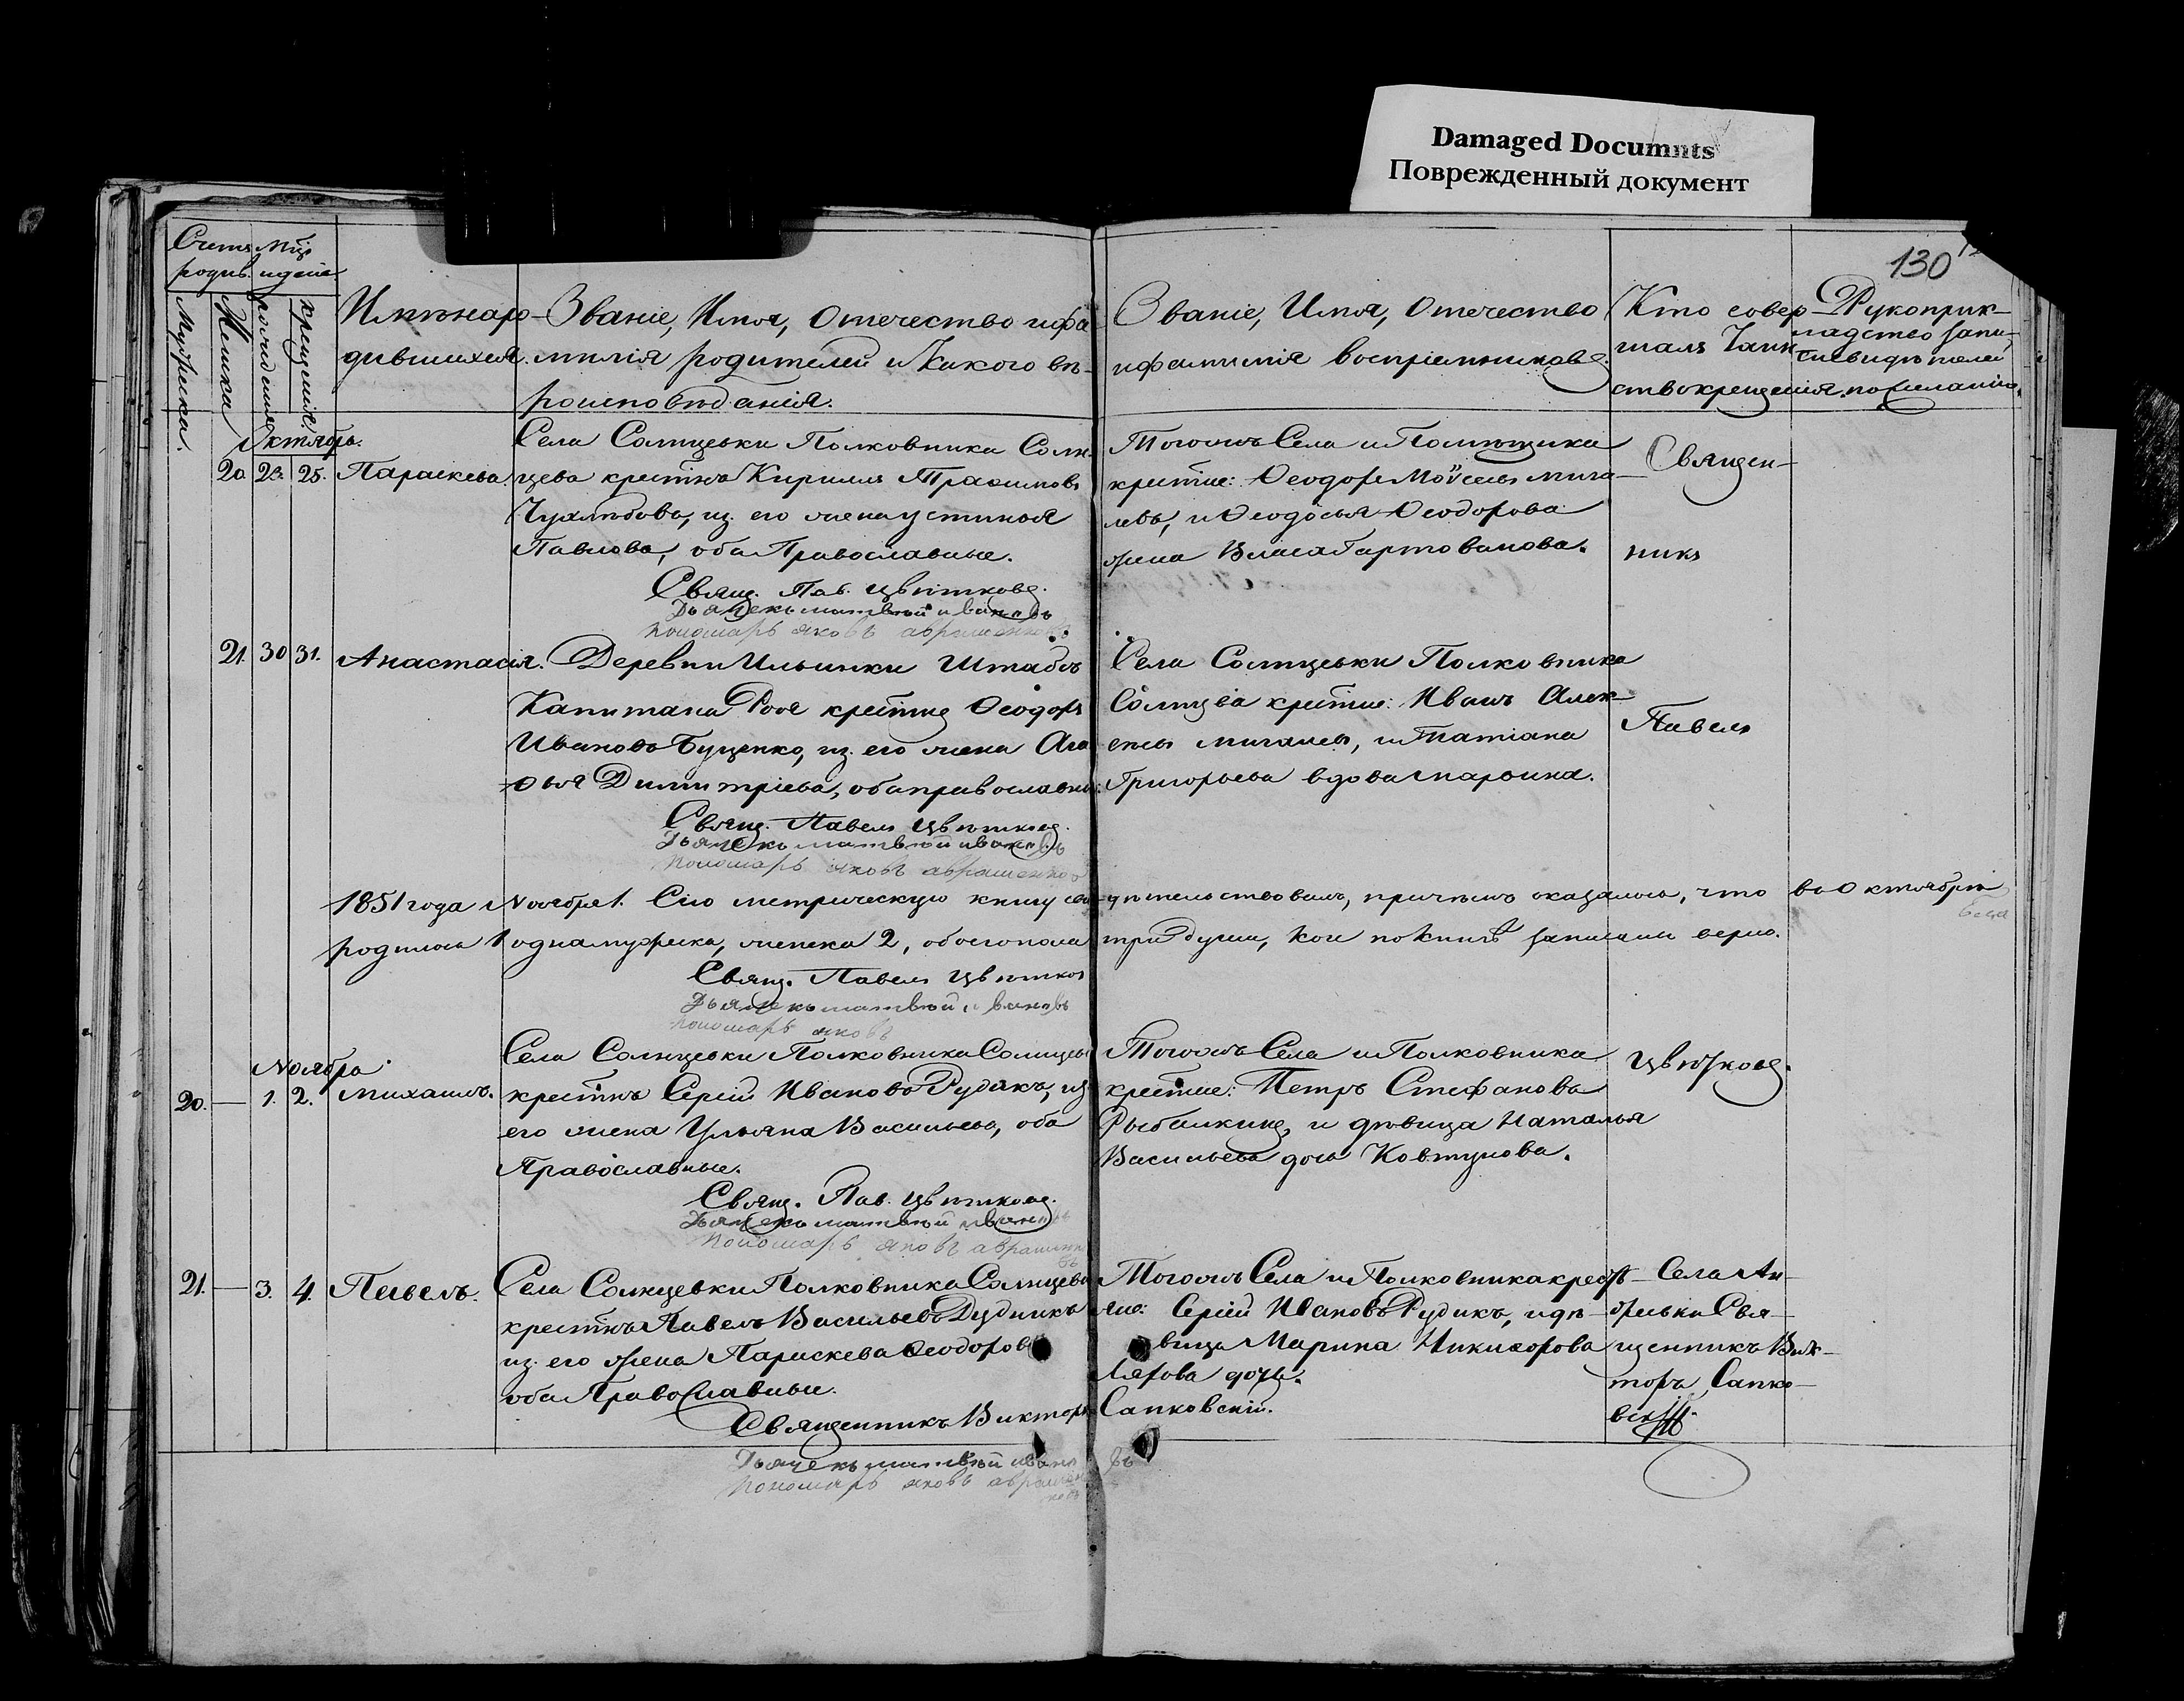 Damaged Documnts
Поврежденный документ
130
Счетъ
родив.
Мужеска.
Женска
рожденія
крещенія
Имѣна ро-
дившихся.
Званіе, Имя, Отечество и фа
милія родителей и Какого вѣ-
роисповѣданія.
Званіе, Имя, Отечество
и фамилія воспріемниковъ.
Кто совер-
шалъ Таин
ство крещенія.
Рукоприк-
ладство
свидѣтелей
по желанію.
Октябрь.
20. 23. 25. Параскева
Села Солнцевки Полковника Солн
цева крестнъ Кириллъ Трофимовъ
из. его жена Устинья
Павлова, оба Православные.
Свящ. Пав. Цвѣтковъ.
Дьячекъ матвѣй ивановъ
пономарь яковъ авраменковъ
Тогожъ Села и Помѣщика
крестне: Ѳеодоръ Моѵсеевъ мига-
левъ, и Ѳеодосья Ѳеодорова
жена Власа
Священ-
никъ
21. 30 31. Анастасія.
Деревни Ильинки Штабсъ
Капитана крестнъ Ѳеодоръ
Ивановъ Буценко, из. его жена Ага
ѳья Димитріева, оба православны:
Свящ. Павелъ Цвѣтковъ.
Дьячекъ матвѣй ивановъ
пономарь яковъ авраменко
Села Солнцевки Полковника
Солнцева крестне: Иванъ Алек-
и Татіана
Григорьева вдова
Павелъ
1851 года Ноября 1. Сію метрическую книгу сви-дѣтельствовалъ, причемъ оказалось, что во Октябрѣ
родилось 1 одна мужеска, женска 2, обоего пола три души, кои по книгѣ записаны верно.
Свящ. Павелъ Цвѣтков
Дьячекъ матвѣй ивановъ
пономарь яковъ
Ноября
20. — 1. 2. Михаилъ.
Села Солнцевки Полковника Солнцева
крестнъ Сергій Ивановъ Рудикъ, из
его жена Ульяна Васильева, оба
Православные.
Свящ. Пав. Цвѣтковъ.
Дьячекъ матвѣй ивановъ
пономарь яковъ авраменко
въ
Тогожъ Села и Полковника
крестне: Петръ Стефановъ
Рыбалкинъ, и дѣвица Наталья
Васильева дочь Ковтунова.
Цвѣтковъ.
21. — 3. 4. Павелъ.
Села Солнцевки Полковника Солнцева
крестнъ Павелъ Васильевъ Дудникъ
из. его жена Параскева Ѳеодоров
оба Православные.
Священникъ Викторъ Сапковскій.
Дьячекъ матвѣй ивановъ
пономарь яковъ авраменко
Тогожъ Села и Полковника крестья-
не: Сергій Ивановъ Рудикъ, и дѣ-
вица Марина Никиѳорова
дочь.
Села
Свя-
щенникъ Вик-
торъ Сапко-
вскій.